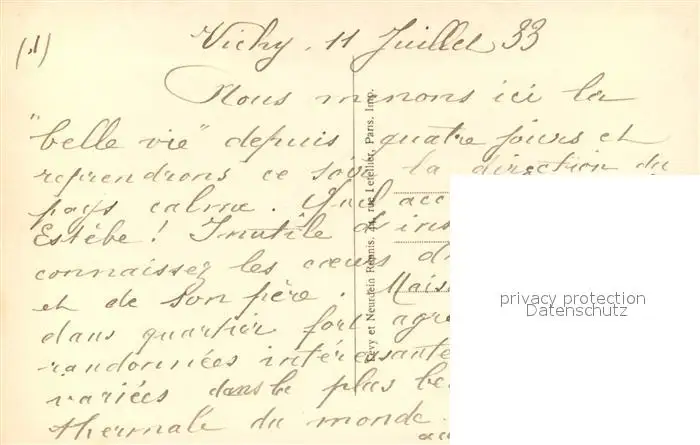 (1)
Vichy, 11 Juillet 33
Nous menons ici la
"belle vie" depuis quatre jours et
reprendrons ce soir la direction du
pays calme. Quel acc
Estèbe! Inutile d'ins
connaissez les cœurs d
et de son père. Mais
dans quartier fort agré
randonnées intéressante
variées dans la plus be
thermale du monde.
Lévy et Neurdein Réunis, 44, rue Letellier, Paris. Imp.
privacy protection
Datenschutz